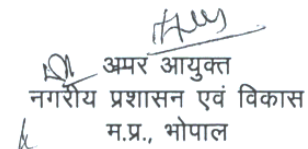 अमर आयुक्त
नगरीय प्रशासन एवं विकास
म.प्र., भोपाल